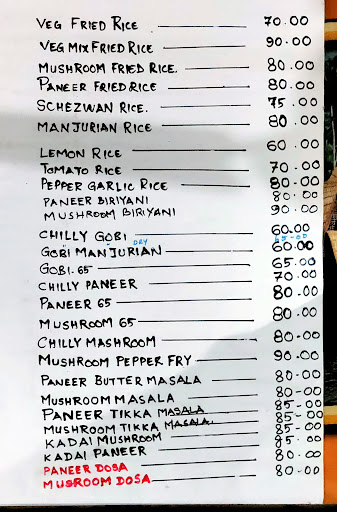 VEG FRIED RICE 70.00
VEG MIX FRIED RICE 90.00
MUSHROOM FRIED RICE. 80.00
PANEER FRIED RICE 80.00
SCHEZWAN RICE. 75.00
MANJURIAN RICE 80.00
LEMON RICE 60.00
TOMATO RICE 70.00
PEPPER GARLIC RICE 80-00
PANEER BIRIYANI 80.00
MUSHROOM BIRIYANI 90.00
CHILLY GOBI 60.00
DRY 65-00
GOBI MANJURIAN 60.00
GOBI.65 65.00
CHILLY PANEER 70.00
PANEER 65 80.00
MUSHROOM 65 80.00
CHILLY MASHROOM 80.00
MUSHROOM PEPPER FRY 90.00
PANEER BUTTER MASALA 80.00
MUSHROOM MASALA 80-00
PANEER TIKKA MASALA 85-00
MUSHROOM TIKKA MASALA. 85-00
KADAI MUSHROOM 85-00
KADAI PANEER 95.00
PANEER DOSA 80.00
MUSROOM DOSA 80.00